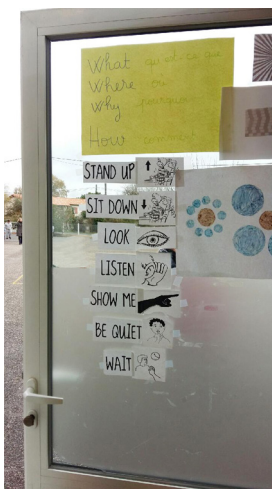 What qu'est-ce que
Where où
Why pourquoi
How comment
STAND UP
SIT DOWN
LOOK
LISTEN
SHOW ME
BE QUIET
WAIT